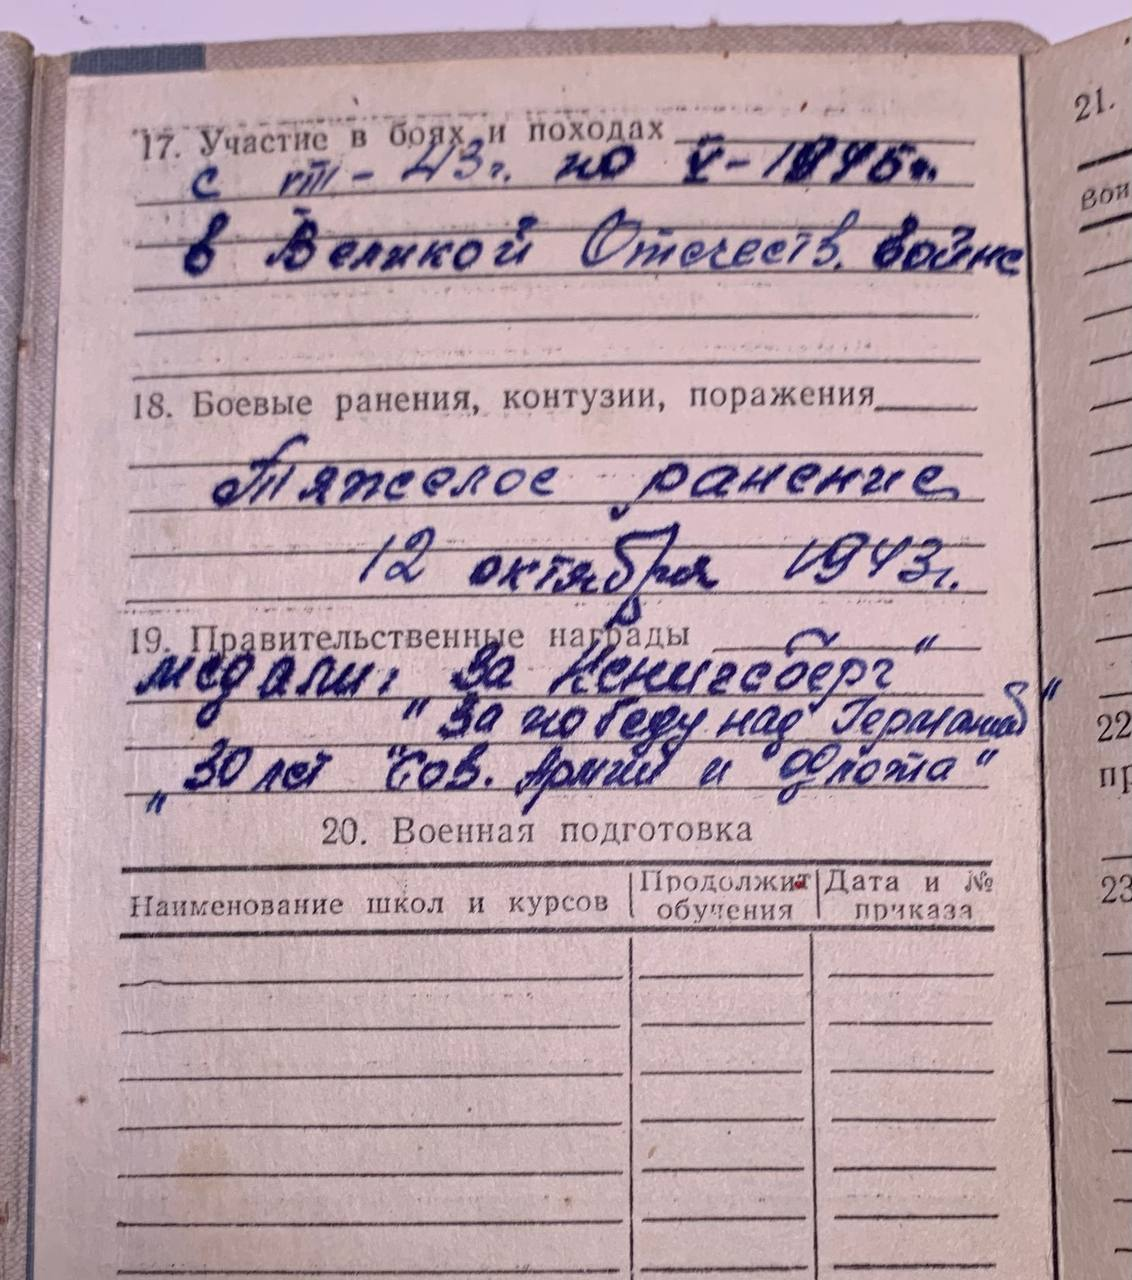 17. Участие в боях и походах
с VIII - 43г. по V - 1945г.
в Великой Отечеств. войне
18. Боевые ранения, контузии, поражения
Тяжелое ранение
12 октября 1943г.
19. Правительственные награды
медали: "За Кенигсберг"
"За победу над Германией"
"30 лет Сов. Армии и Флота"
20. Военная подготовка
Наименование школ и курсов | Продолжит обучения | Дата и № приказа
21.
вои
22
пр
23